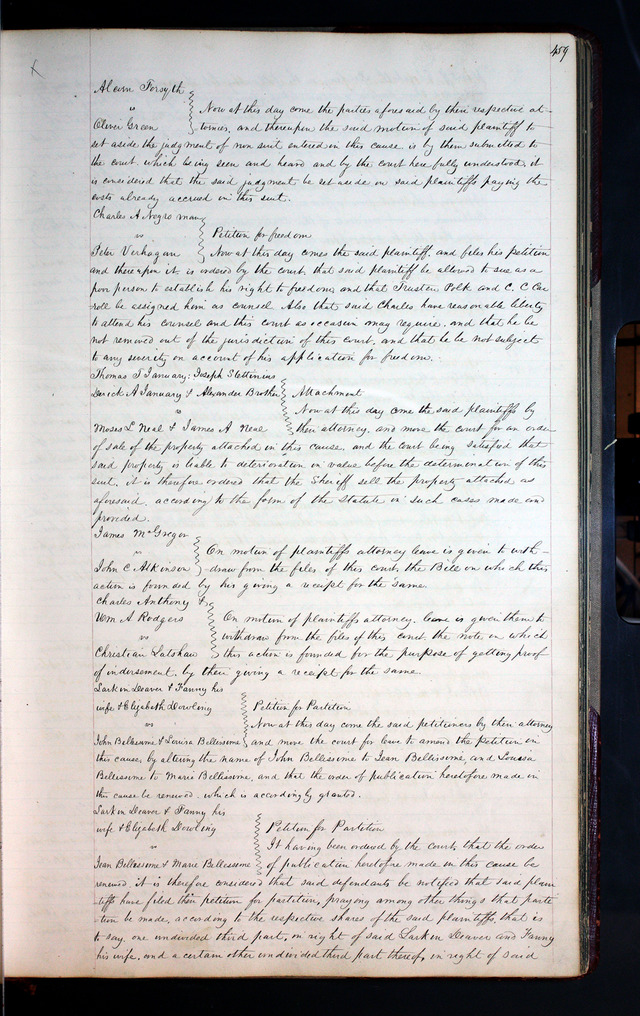 459
Alcem Forsyth
vs
Now at this day come the parties aforesaid by their respective at-
Oliver Green
tornies, and thereupon the said motion of said plaintiff to
set aside the judgment of non suit entered in this cause is by them submitted to
the court, which being seen and heard and by the court here fully understood, it
is considered that the said judgment be set aside on said plaintiffs paying the
costs already accrued in this suit.
Charles A Negro man
vs
Petition for freedom
Peter Verhagan
Now at this day comes the said plaintiff, and files his petition
and thereupon it is ordered by the court, that said plaintiff be allowed to sue as a
poor person to establish his right to freedom, and that Trusten Polk and C. C Car
roll be assigned him as counsel. Also that said Charles have reasonable liberty
to attend his counsel and this court as occasion may require, and that he be
not removed out of the jurisdiction of this court, and that he be not subject
to any severity on account of his application for freedom.
Thomas T January, Joseph Stettinius
Derick A January & Alexander Brother
Attachment
vs
Now at this day come the said plaintiffs by
Moses L Neal & James A Neal
their attorney, and move the court for an order
of sale of the property attached in this cause, and the court being satisfied that
said property is liable to deterioration in value before the determination of this
suit, it is therefore ordered that the Sheriff sell the property attached as
aforesaid, according to the form of the statute in such cases made and
provided.
James McGregor
vs
On motion of plaintiffs attorney leave is given to with-
John C Atkinson
draw from the files of this court, the Bill on which this
action is founded by his giving a receipt for the same.
Charles Anthony &
Wm A Rodgers
On motion of plaintiffs attorney, leave is given them to
vs
withdraw from the files of this court, the note on which
Christian Latshaw
this action is founded for the purpose of getting proof
of indorsement, by their giving a receipt for the same.
Larkin Deaver & Fanny his
wife & Elizabeth Dowling
Petition for Partition
vs
Now at this day come the said petitioners by their attorney
John Bellissime & Louisa Bellissime
and move the court for leave to amend the petition in
this cause, by altering the name of John Bellissime to Jean Bellissime, and Louisa
Bellissime to Marie Bellissime, and that the order of publication heretofore made in
this cause be renewed, which is accordingly granted.
Larkin Deaver & Fanny his
wife & Elizabeth Dowling
Petition for Partition
vs
It having been ordered by the court, that the order
Jean Bellissime & Marie Bellissime
of publication heretofore made in this cause be
renewed, it is therefore considered that said defendants be notified that said plain
tiffs have filed their petition for partition, praying among other things that parti
tion be made, according to the respective shares of the said plaintiffs, that is
to say, one undivided third part, in right of said Larkin Deaver and Fanny
his wife, and a certain other undivided third part thereof, in right of said